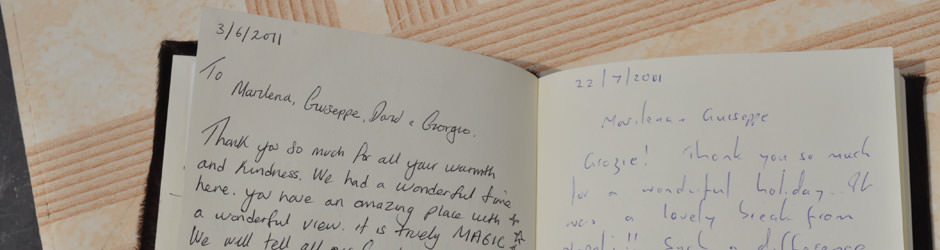 3/6/2011
To
Marilena, Giuseppe, David & Giorgio.
Thank you so much for all your warmth
and kindness. We had a wonderful time
here. you have an amazing place with
a wonderful view. it is truely MAGIC
We will tell all our
22/7/2011
Marilena & Guiseppe
Grazie! Thank you so much
for a wonderful holiday.. It
was a lovely break from
such a difference